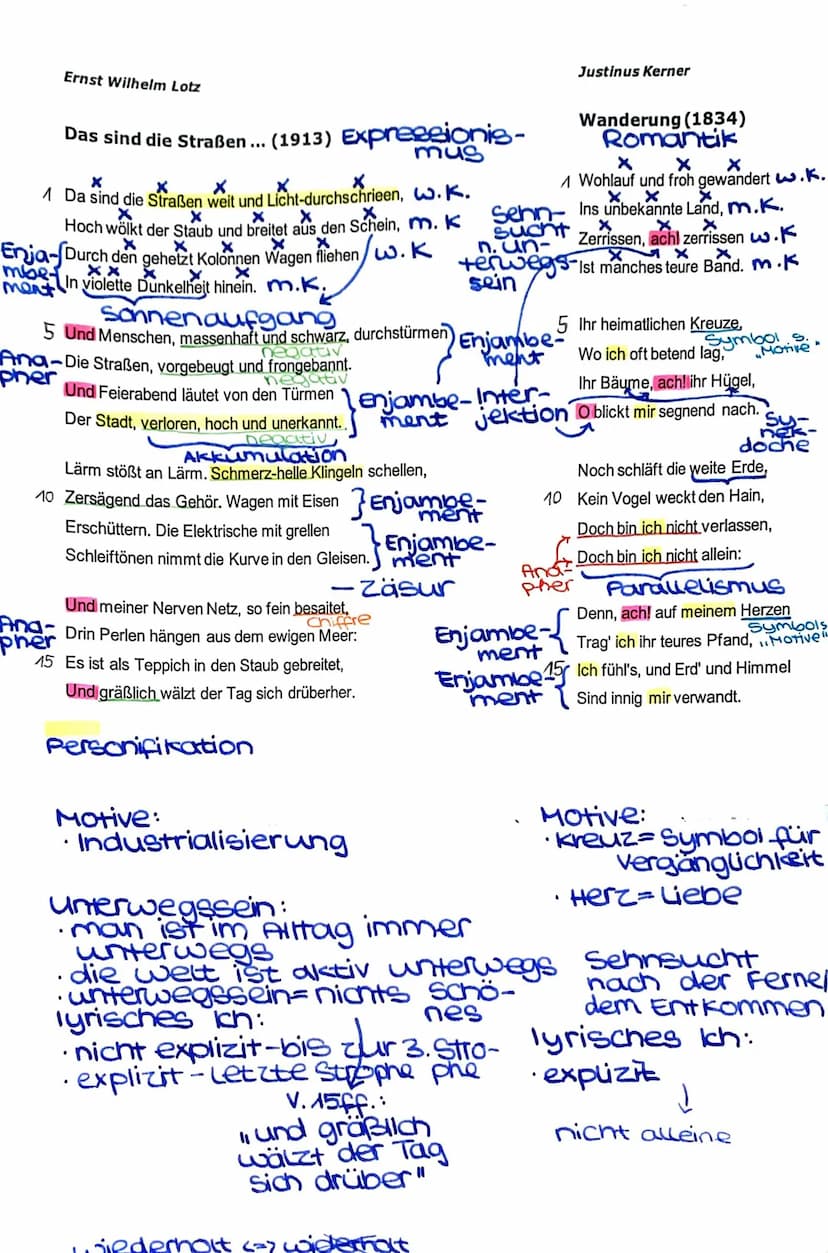 Ernst Wilhelm Lotz
Das sind die Straßen ... (1913) Expressionis-
mus
1 Da sind die Straßen weit und Licht-durchschrieen, w.K.
Hoch wölkt der Staub und breitet aus den Schein, m.K
Enja-
mbe-
ment
Durch den gehetzt Kolonnen Wagen fliehen w.K
In violette Dunkelheit hinein. m.K.
Sonnenaufgang
5 Und Menschen, massenhaft und schwarz, durchstürmen
negativ
Enjambe-
ment
Ana-
pher
Die Straßen, vorgebeugt und frongebannt.
negativ
Und Feierabend läutet von den Türmen
Enjambe-
ment
Der Stadt, verloren, hoch und unerkannt.
negativ
Akkumulation
Lärm stößt an Lärm. Schmerz-helle Klingeln schellen,
10 Zersägend das Gehör. Wagen mit Eisen
Enjambe-
ment
Erschüttern. Die Elektrische mit grellen
Enjambe-
ment
Schleiftönen nimmt die Kurve in den Gleisen.
– Zäsur
Und meiner Nerven Netz, so fein besaitet,
Chiffre
Ana-
pher
Drin Perlen hängen aus dem ewigen Meer:
15 Es ist als Teppich in den Staub gebreitet,
Und gräßlich wälzt der Tag sich drüberher.
Personifikation
Motive:
· Industrialisierung
Unterwegssein:
· man ist im Alltag immer
unterwegs
· die Welt ist aktiv unterwegs
· unterwegssein= nichts Schö-
nes
lyrisches Ich:
· nicht explizit-bis zur 3. Stro-
phe
· explizit - Letzte Strophe
V. 15ff.:
„und gräßlich
wälzt der Tag
sich drüber"
wiederholt <=> widerholt
Justinus Kerner
Wanderung (1834)
Romantik
1 Wohlauf und froh gewandert w.K.
Ins unbekannte Land, m.K.
Sehn-
sucht
n. un-
terwegs-
sein
Zerrissen, ach! zerrissen w.K
Ist manches teure Band. m.K
5 Ihr heimatlichen Kreuze,
Symbol s.
„Motive"
Wo ich oft betend lag,
Ihr Bäume, ach! ihr Hügel,
Inter-
jektion
O blickt mir segnend nach.
Sy-
nek-
doche
Noch schläft die weite Erde,
10 Kein Vogel weckt den Hain,
Doch bin ich nicht verlassen,
Doch bin ich nicht allein:
Ana-
pher
Parallelismus
Denn, ach! auf meinem Herzen
Enjambe-
ment
Symbol s.
„Motive"
Trag' ich ihr teures Pfand,
15 Ich fühl's, und Erd' und Himmel
Enjambe-
ment
Sind innig mir verwandt.
Motive:
· Kreuz= Symbol für
Vergänglichkeit
· Herz= Liebe
Sehnsucht
nach der Ferne/
dem Entkommen
lyrisches Ich:
· explizit
nicht alleine